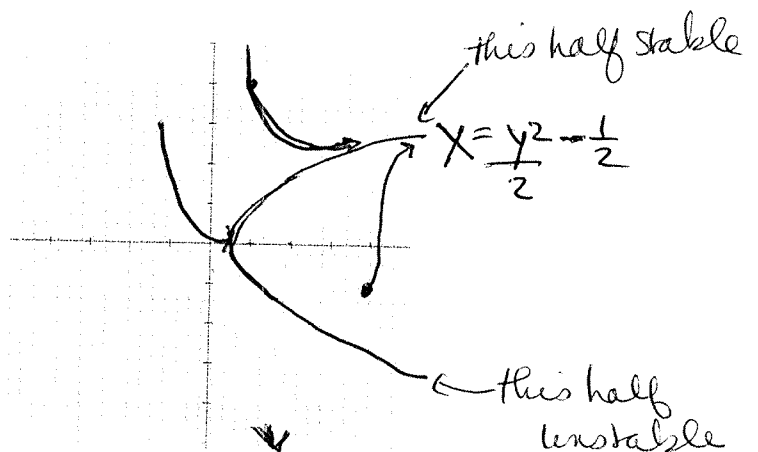 this half stable
X = y²/2 - 1/2
this half
unstable